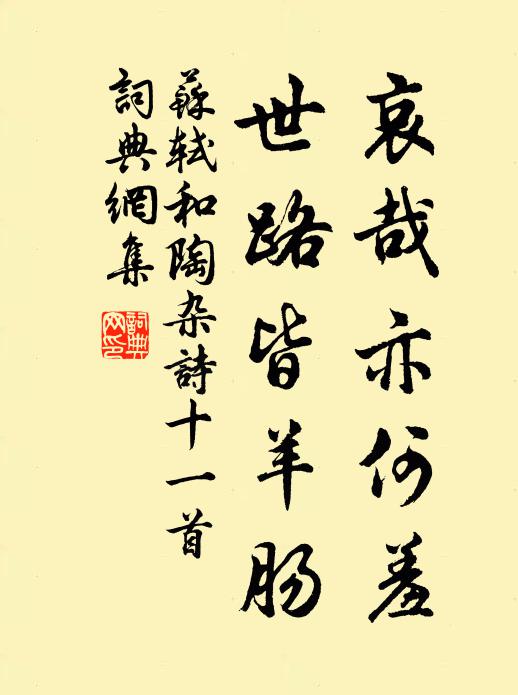 哀哉亦何羞
世路皆羊肠
蘇軾和陶杂詩十一首
詞典網集
詞典网印